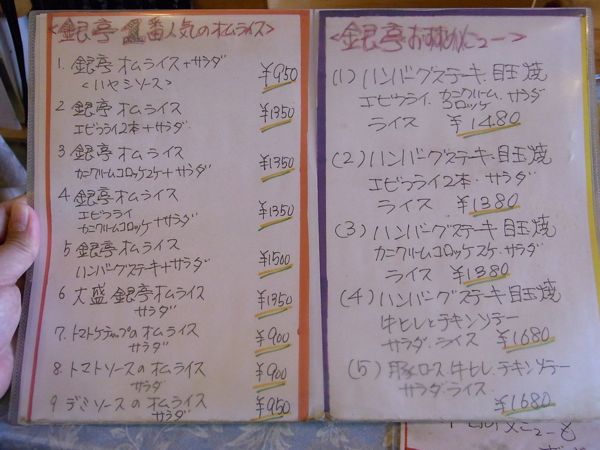 <銀亭 1番人気のオムライス>
1. 銀亭オムライス+サラダ ¥950
<ハヤシソース>
2 銀亭オムライス ¥1350
エビフライ2本+サラダ
3 銀亭オムライス ¥1350
カニクリームコロッケ2ケ+サラダ
4 銀亭オムライス ¥1350
エビフライ
カニクリームコロッケ+サラダ
5 銀亭オムライス ¥1500
ハンバーグステーキ+サラダ
6 大盛 銀亭オムライス ¥1350
サラダ
7. トマトケチャップのオムライス ¥900
サラダ
8. トマトソースのオムライス ¥900
サラダ
9 デミソースのオムライス ¥950
サラダ
<銀亭おすすめメニュー>
(1) ハンバーグステーキ.目玉焼
エビフライ.カニクリームコロッケ.サラダ
ライス ¥1480
(2) ハンバーグステーキ.目玉焼
エビフライ2本.サラダ
ライス ¥1380
(3) ハンバーグステーキ 目玉焼
カニクリームコロッケ2ケ.サラダ
ライス ¥1380
(4) ハンバーグステーキ 目玉焼
牛ヒレとチキンソテー
サラダ.ライス ¥1680
(5) 豚ロース.牛ヒレ.チキンソテー
サラダ.ライス.
¥1680